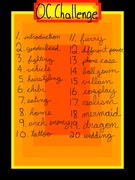 OC Challenge
1. introduction
2. genderbend
3. fighting
4. vehicle
5. hairstyling
6. chibi
7. eating
8. home
9. arch enemy
10. tattoo
11. hurry
12. different power
13. phone case
14. ballgown
15. villain
16. cosplay
17. realism
18. mermaid
19. dragon
20. wedding